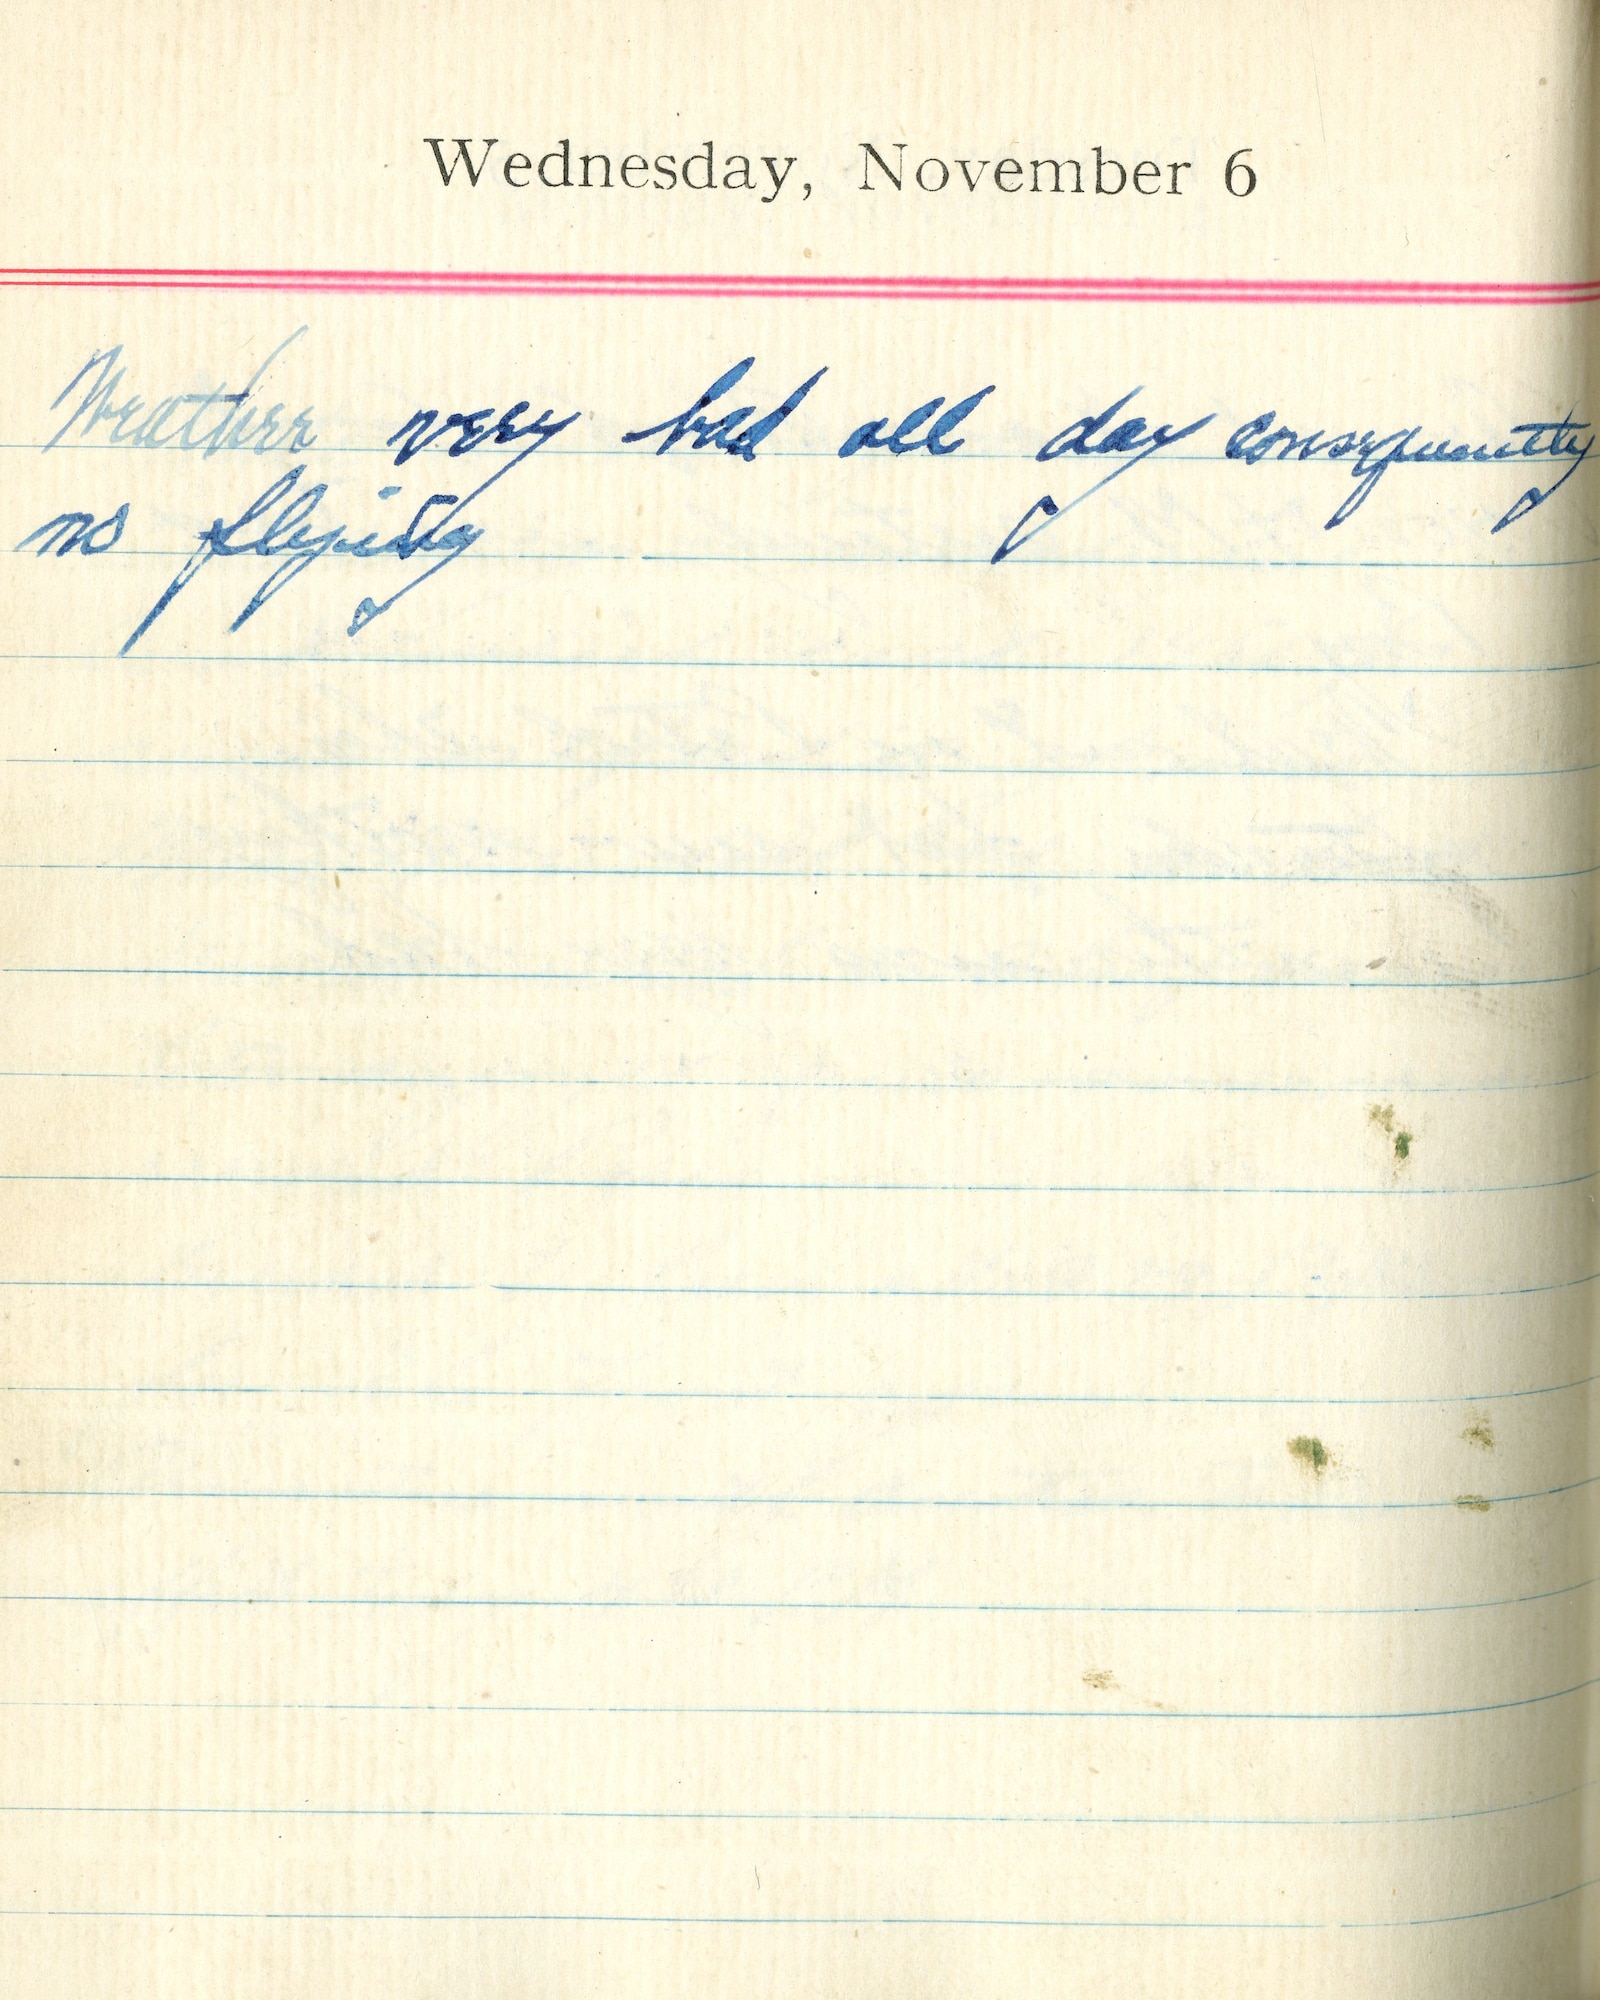 Wednesday, November 6
Weather very bad all day consequently
no flying